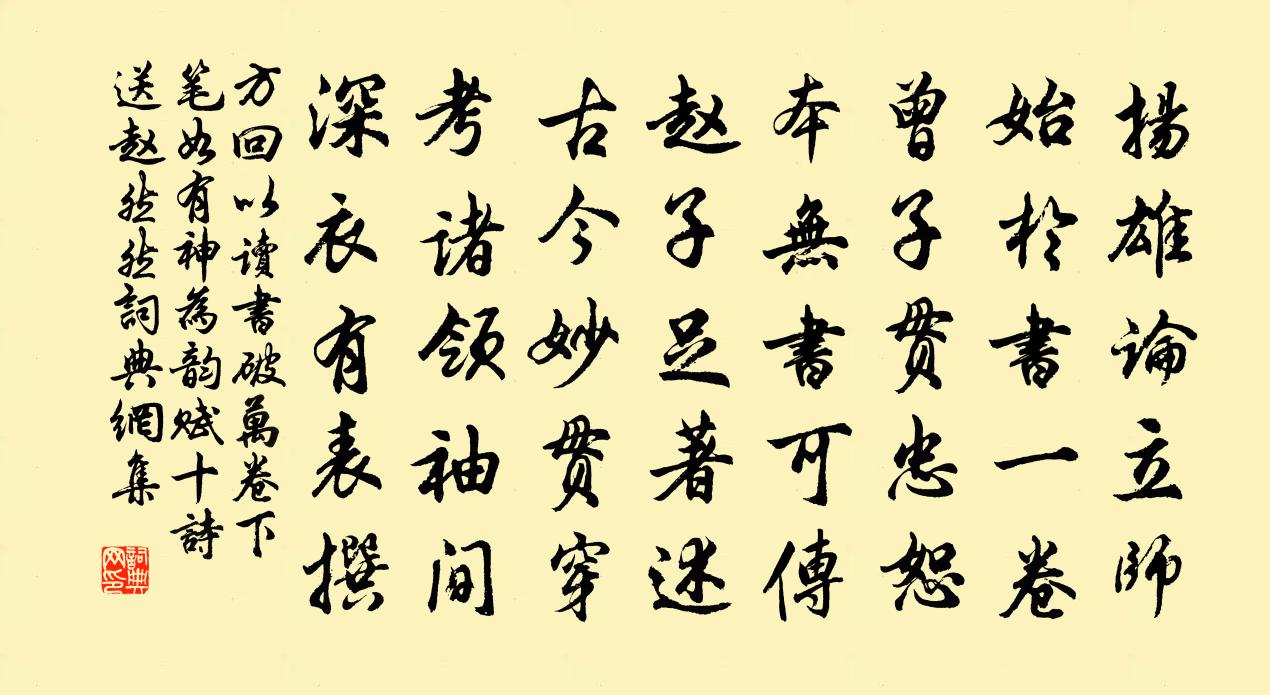 揚雄論立師
始於書一卷
曾子貫忠恕
本無書可傳
赵子足著述
古今妙貫穿
考諸領袖間
深衣有表撰
方回以讀書破萬卷下
笔如有神為韵賦十詩
送赵然然詞典網集
詞典网印